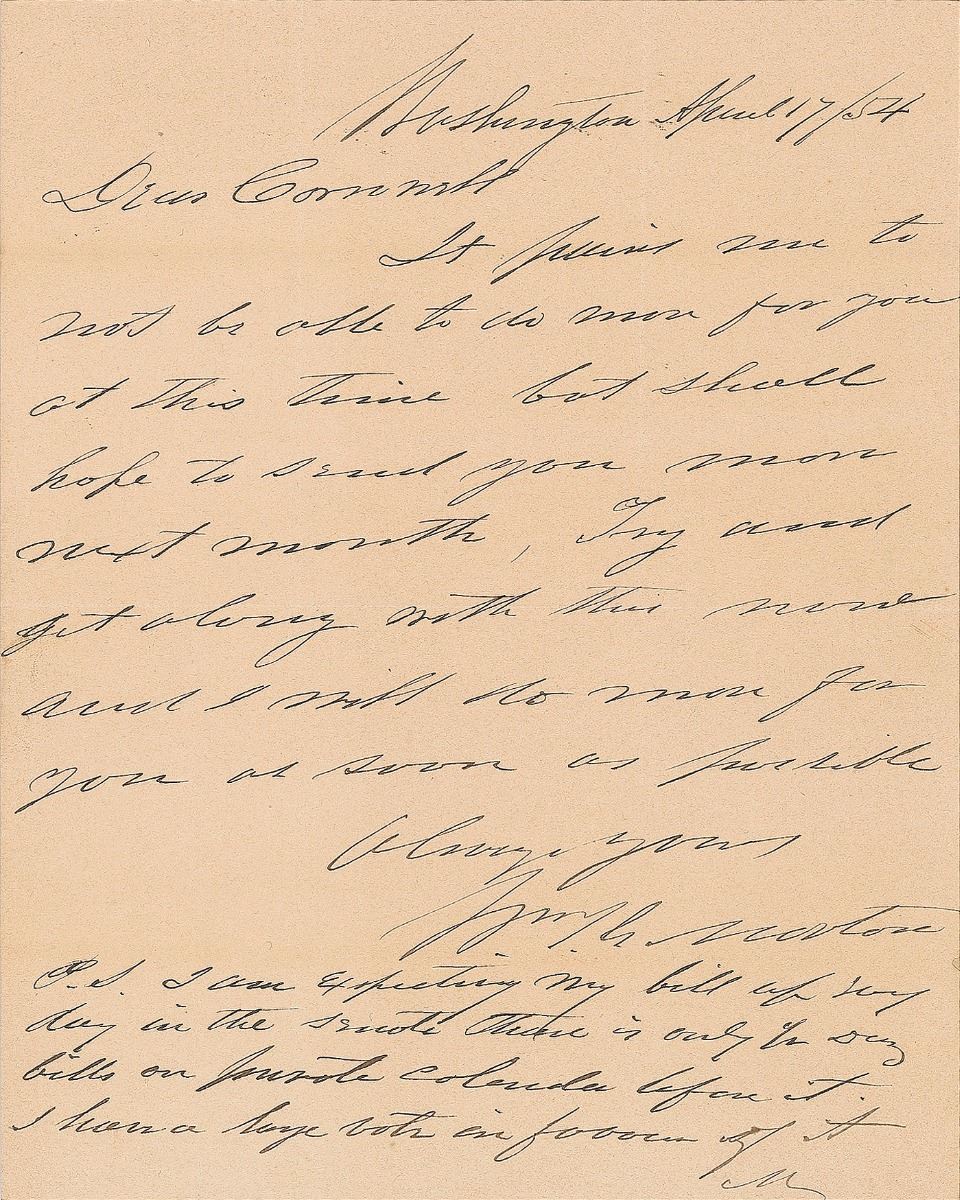 Washington April 17/54
Dear Cornwell
It pains me to
not be able to do more for you
at this time but shall
hope to send you more
next month, Try and
get along with this now
and I will do more for
you as soon as possible
Always yours
Wm. T. G. Morton
P.S. I am expecting my bill up every
day in the senate there is only
bills on private calender before it.
I have a large vote in favour of it
M